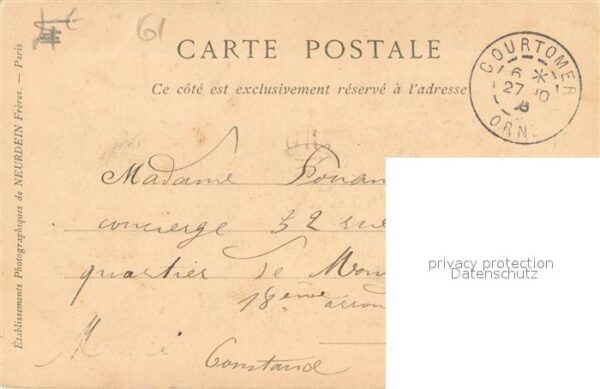 61
CARTE POSTALE
Ce côté est exclusivement réservé à l'adresse
COURTOMER
6
27
ORNE
Établissements Photographiques de NEURDEIN Frères. — Paris
Madame
concierge 32 rue
quartier de
18ème
Constand
privacy protection
Datenschutz